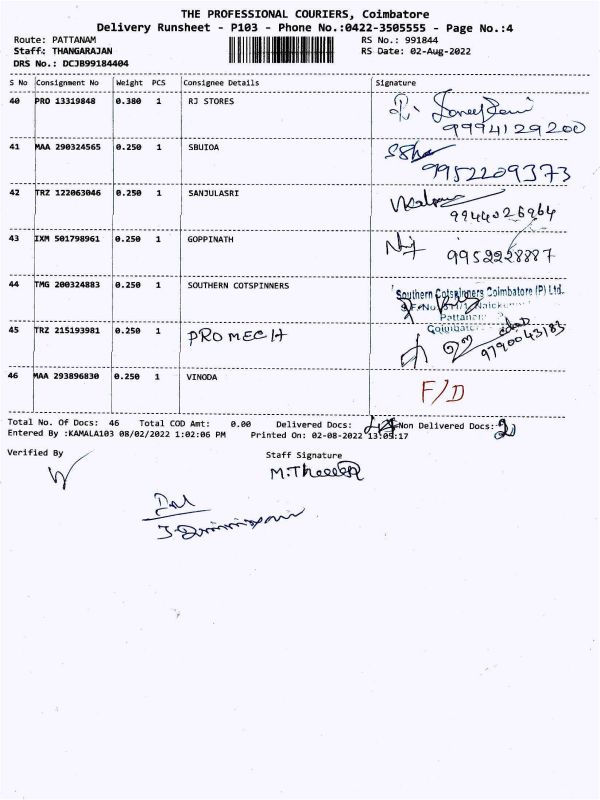 THE PROFESSIONAL COURIERS, Coimbatore
Delivery Runsheet - P103 - Phone No.:0422-3505555 - Page No.:4
Route: PATTANAM RS No.: 991844
Staff: THANGARAJAN RS Date: 02-Aug-2022
DRS No.: DCJB99184404
S No Consignment No Weight PCS Consignee Details Signature
40 PRO 13319848 0.380 1 RJ STORES
9994129200
41 MAA 290324565 0.250 1 SBUIOA
9952209373
42 TRZ 122063046 0.250 1 SANJULASRI
9944026964
43 IXM 501798961 0.250 1 GOPPINATH
9952228887
44 TMG 200324883 0.250 1 SOUTHERN COTSPINNERS
Southern Cotspinners Coimbatore (P) Ltd.
45 TRZ 215193981 0.250 1 PROMECH
9790043183
46 MAA 293896830 0.250 1 VINODA F/D
Total No. Of Docs: 46 Total COD Amt: 0.00 Delivered Docs: Non Delivered Docs:
Entered By :KAMALA103 08/02/2022 1:02:06 PM Printed On: 02-08-2022 13:09:17
Verified By Staff Signature